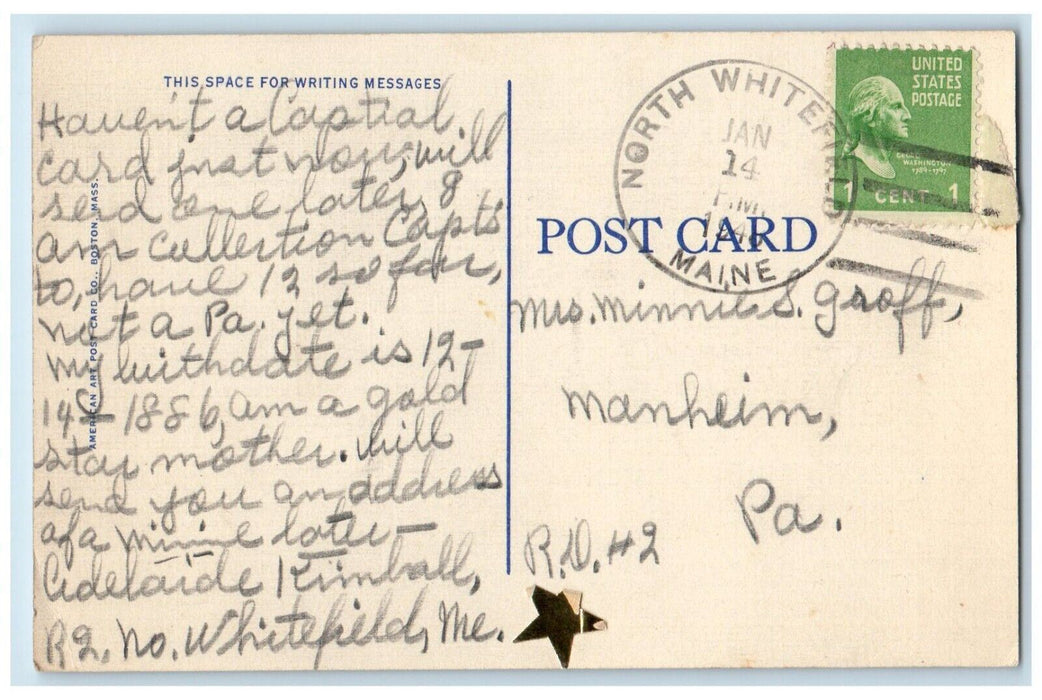 THIS SPACE FOR WRITING MESSAGES
Haven't a Captial
card just now, will
send one later. I
am collection Capts
to, have 12 so far,
not a Pa. yet.
My birthdate is 12-
14-1886, am a gold
star mother. Will
send you an address
of a Minnie later-
Adelaide Kimball,
R2, No. Whitefield, Me.
AMERICAN ART POST CARD CO., BOSTON, MASS.
NORTH WHITEFIELD
JAN
14
P.M.
MAINE
UNITED
STATES
POSTAGE
GEORGE
WASHINGTON
1789-1797
1 CENT 1
POST CARD
Mrs. Minnie S. Groff,
Manheim,
Pa.
R.D. #2